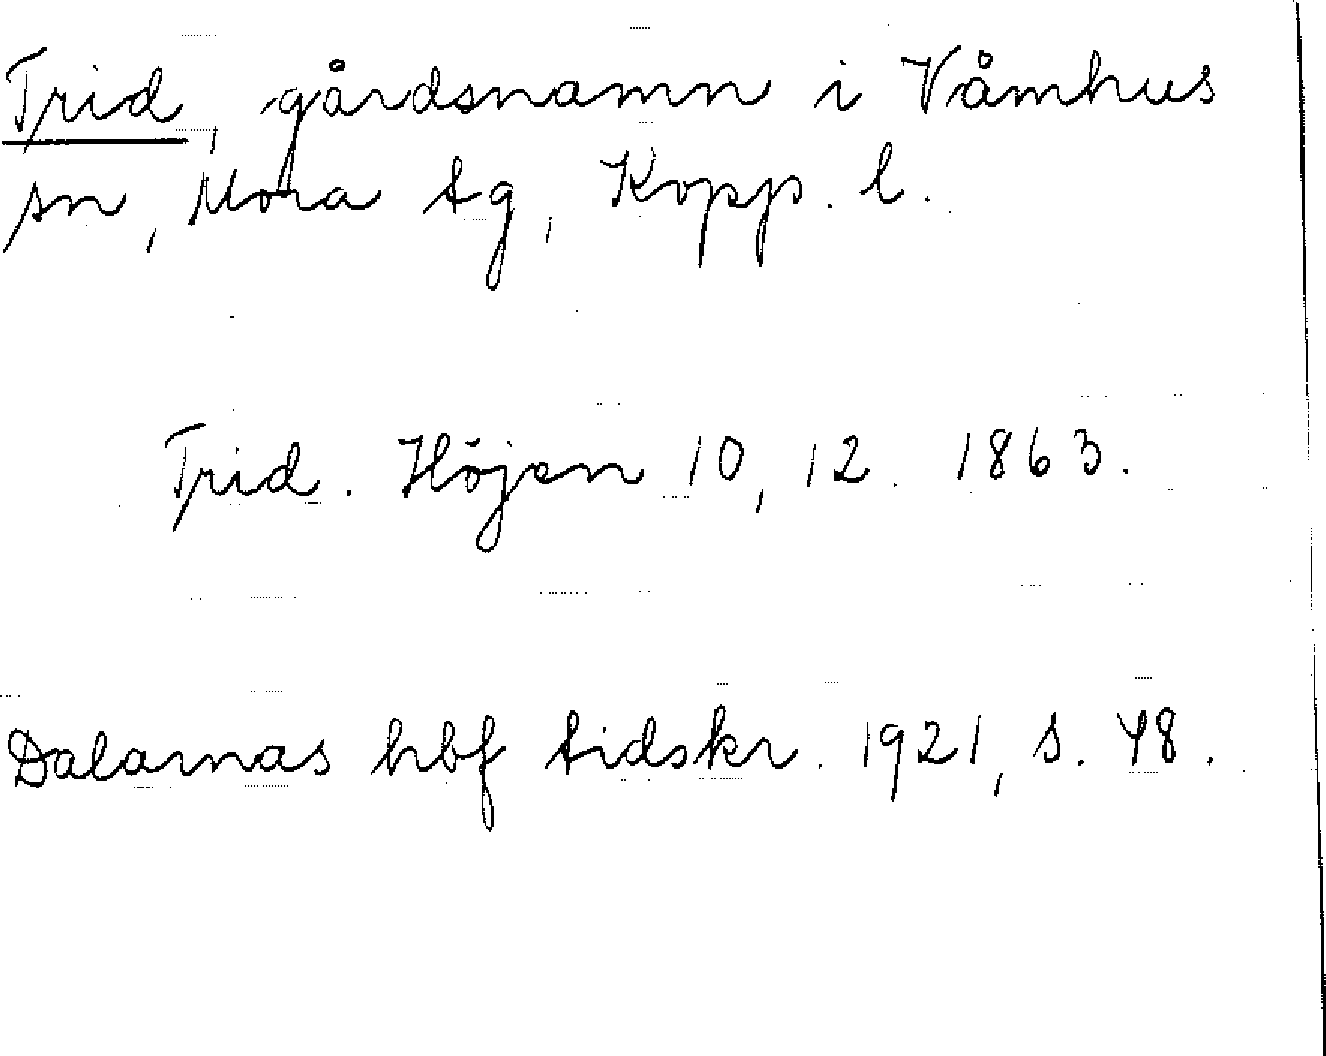 Trid, gårdsnamn i Våmhus
sn, Mora tg, Kopp. l.
Trid. Höjen 10, 12. 1863.
Dalarnas hbf tidskr. 1921, s. 48.